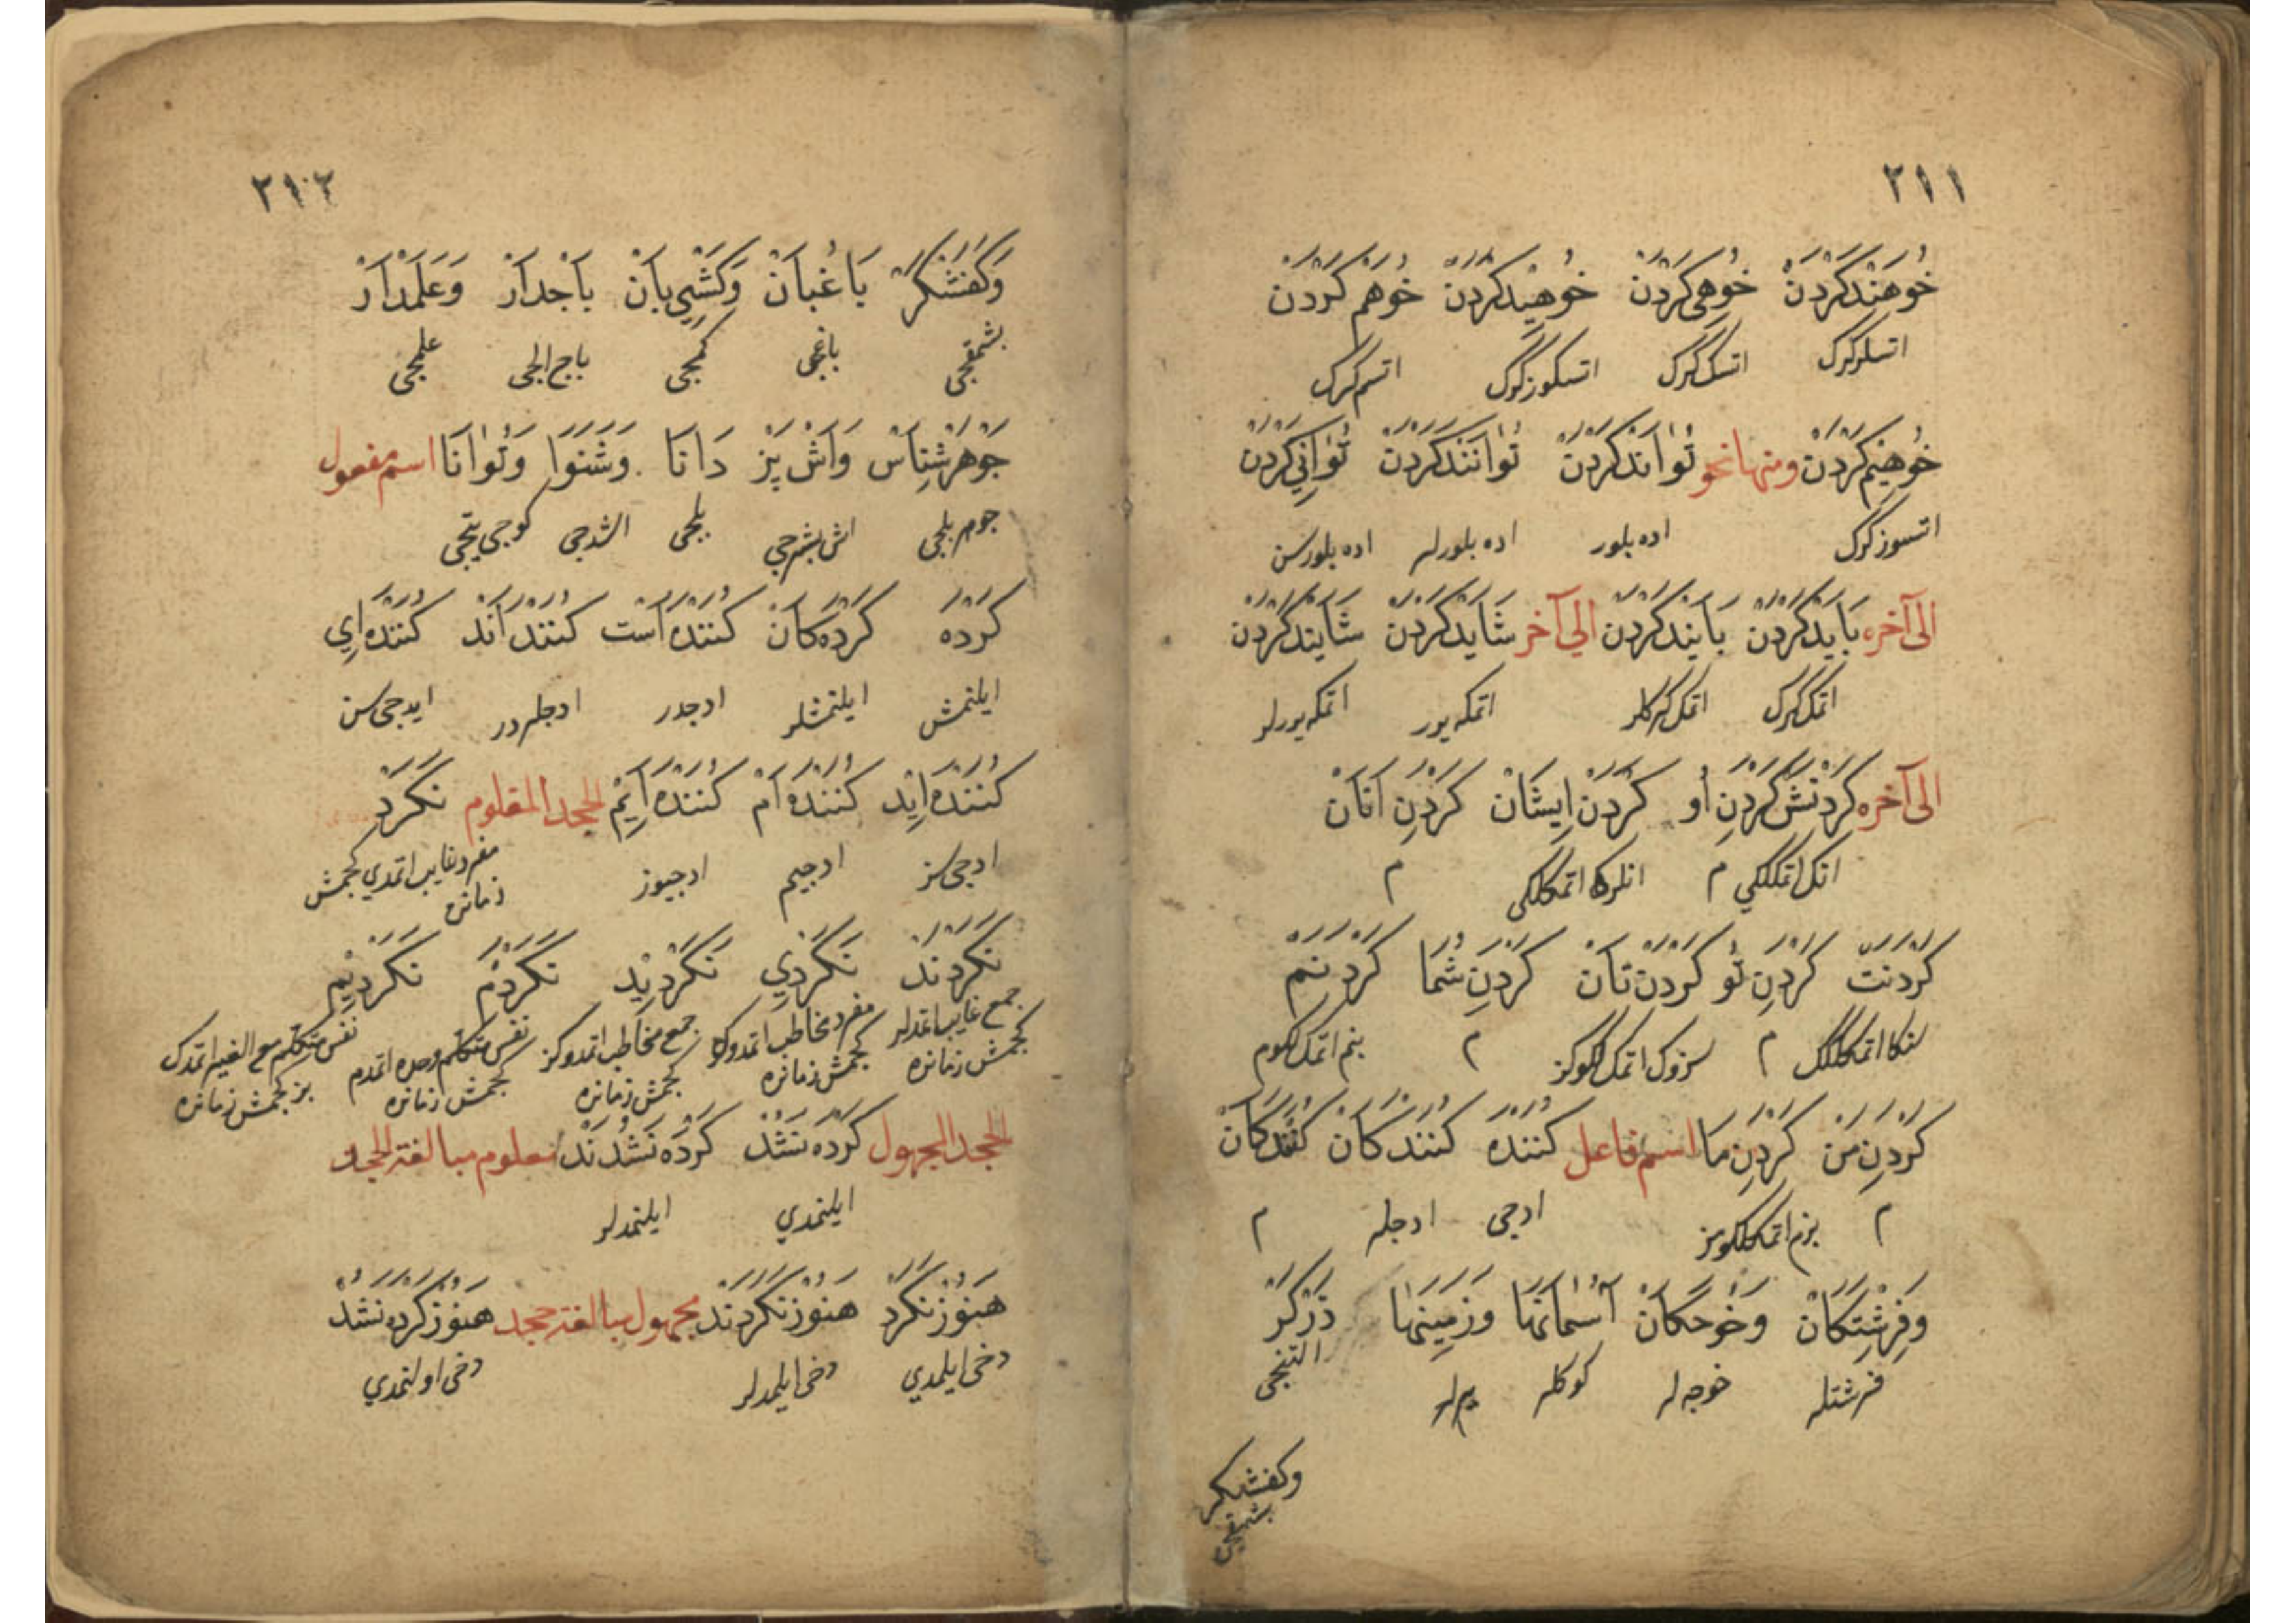 ٢١١
خُوهَنْدکَرْدَنْ خُوهِیکَرْدَنْ خُوهِیْدکَرْدَنْ خُوهَمْ کَرْدَنْ
اتسلر کرک اتسک کرک اتسکوز کرک اتسم کرک
خُوهِیْم کَرْدَنْ ومنها نحو تُوَانَدْ کَرْدَنْ تُوَانَنْد کَرْدَنْ تُوَانِی کَرْدَنْ
اتسوز کرک اده بلور اده بلورلر اده بلورسن
الی آخره بَایَدْ کَرْدَنْ بَایَنْد کَرْدَنْ الی آخر شَایَدْ کَرْدَنْ شَایَنْد کَرْدَنْ
اتمک کرک اتمک کرکلر اتمکه یور اتمکه یورلر
الی آخره کَرْدَنَشْ کَرْدَنِ اُو کَرْدَنِ اِیشَانْ کَرْدَنِ آنَانْ
انک اتمکلکی م انلرک اتمکلکی م
کَرْدَنَتْ کَرْدَنِ تُو کَرْدَنْ تَانْ کَرْدَنِ شُمَا کَرْدَنَمْ
سنک اتمکلکک م سزوک اتمکلکوکز م بنم اتمکلکوم
کَرْدَنِ مَنْ کَرْدَنِ مَا اسم فاعل کُنَنْدَه کُنَنْدَکَانْ کُنَنْدَکَانْ
م بزم اتمکلکومز ادجی ادجلر م
وَفِرِشْتَکَانْ وَخُوجَکَانْ آسْمَانْهَا وَزَمِینْهَا زَرْکَرْ
فرشتلر خوجه لر کوکلر یرلر التنجی
وکفشکر
بشمقجی
٢١٢
وَکَفْشْکَرْ بَاغْبَانْ وَکَشْتِی بَانْ بَاجْدَارْ وَعَلَمْدَارْ
بشمقجی باغجی کمجی باج الجی علمجی
جَوْهَرْشِنَاسْ وَاَشْ پَزْ دَانَا وَشَنَوَا وَتُوَانَا اسم مفعول
جوهر بلجی اش بشرجی بلجی اشدجی کوجی یتجی
کَرْدَه کَرْدَه کَانْ کُنَنْدَه اَسْت کُنَنْدَه اَنْد کُنَنْدَه اِی
ایلنمش ایلنمشلر ادجدر ادجلردر ایدجی سن
کُنَنْدَه اِیْد کُنَنْدَه اَمْ کُنَنْدَه اِیْم الجحد المعلوم نَکَرْد
ادجی سز ادجیم ادجیوز مفرد غایب اتمدی کجمش زمانده
نَکَرْدَنْد نَکَرْدِی نَکَرْدِیْد نَکَرْدَمْ نَکَرْدِیْم
جمع غایب اتمدلر مفرد مخاطب اتمدوک جمع مخاطب اتمدوکز نفس متکلم وحده اتمدم نفس متکلم مع الغیر اتمدک
کجمش زمانده کجمش زمانده کجمش زمانده کجمش زمانده بز کجمش زمانده
الجحد المجهول کَرْدَه نَشُدْ کَرْدَه نَشُدَنْد معلوم مبالغة الجحد
ایلنمدی ایلنمدلر
هَنُوزْ نَکَرْد هَنُوزْ نَکَرْدَنْد مجهول مبالغة جحد هَنُوزْ کَرْدَه نَشُدْ
دخی ایلمدی دخی ایلمدلر دخی اولنمدی